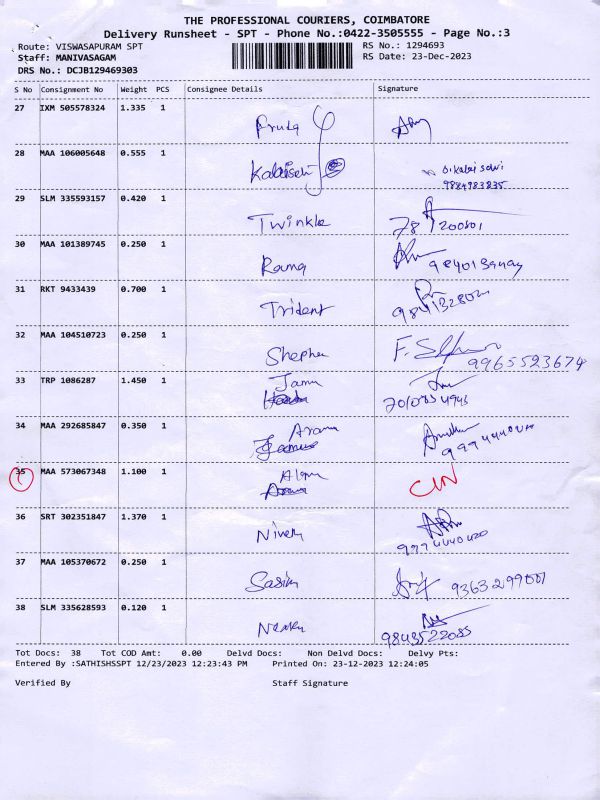 THE PROFESSIONAL COURIERS, COIMBATORE
Delivery Runsheet - SPT - Phone No.:0422-3505555 - Page No.:3
Route: VISWASAPURAM SPT RS No.: 1294693
Staff: MANIVASAGAM RS Date: 23-Dec-2023
DRS No.: DCJB129469303
S No Consignment No Weight PCS Consignee Details Signature
27 IXM 505578324 1.335 1
28 MAA 106005648 0.555 1 Kalaiselvi S.Kalai selvi
9884983835
29 SLM 335593157 0.420 1 Twinkle
30 MAA 101389745 0.250 1 Rama
31 RKT 9433439 0.700 1 Trident
32 MAA 104510723 0.250 1 Stephen 9965523674
33 TRP 1086287 1.450 1 Jamu
34 MAA 292685847 0.350 1
35 MAA 573067348 1.100 1 CIN
36 SRT 302351847 1.370 1 Nivek
37 MAA 105370672 0.250 1 Sasik
38 SLM 335628593 0.120 1 9843522085
Tot Docs: 38 Tot COD Amt: 0.00 Delvd Docs: Non Delvd Docs: Delvy Pts:
Entered By :SATHISHSSPT 12/23/2023 12:23:43 PM Printed On: 23-12-2023 12:24:05
Verified By Staff Signature